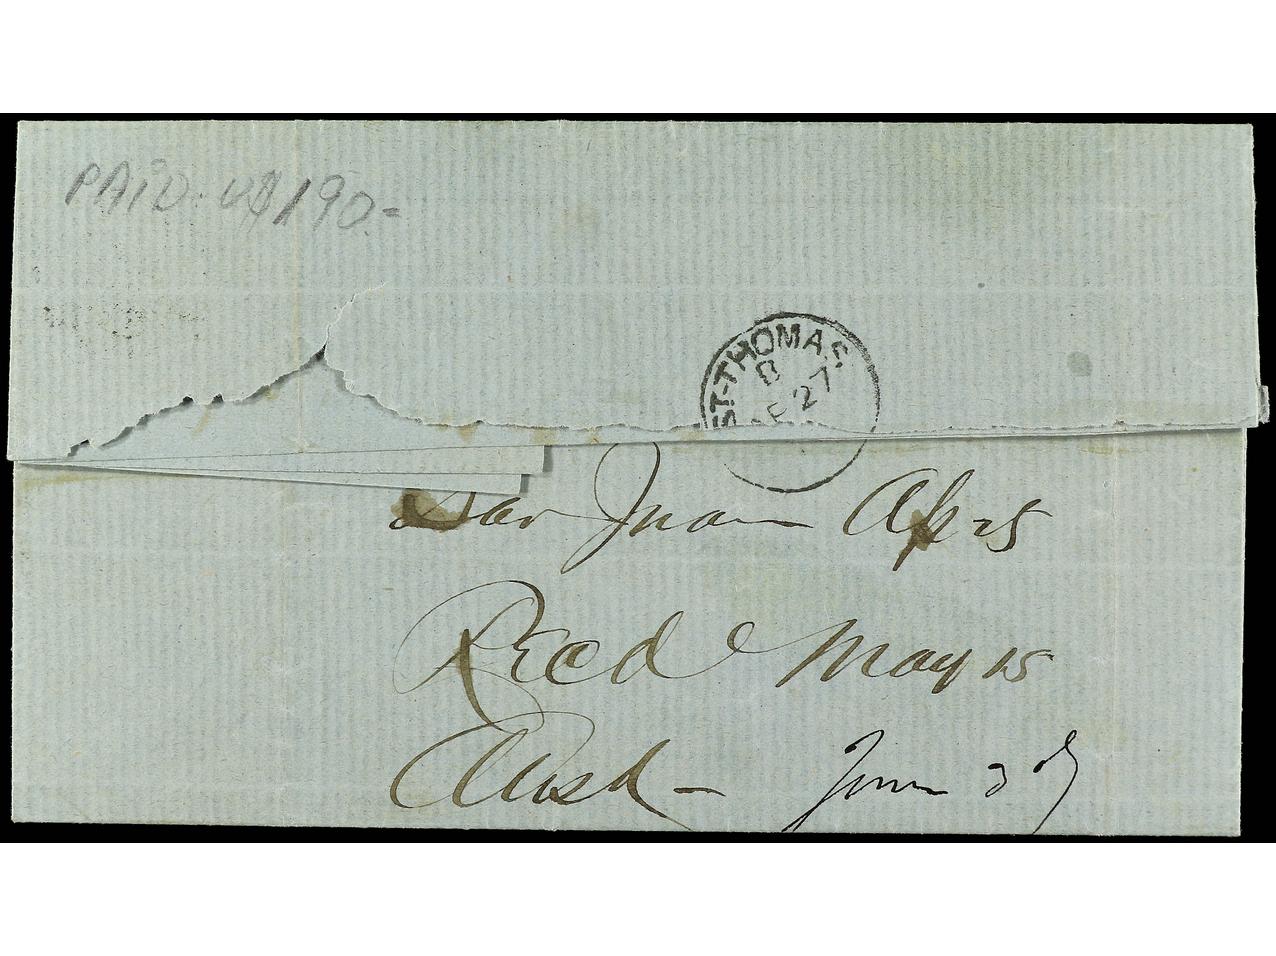 PAID. U$190.=
ST-THOMAS.
B
AP 27
San Juan Ap 25
Recd May 15
Ansd - June 3d